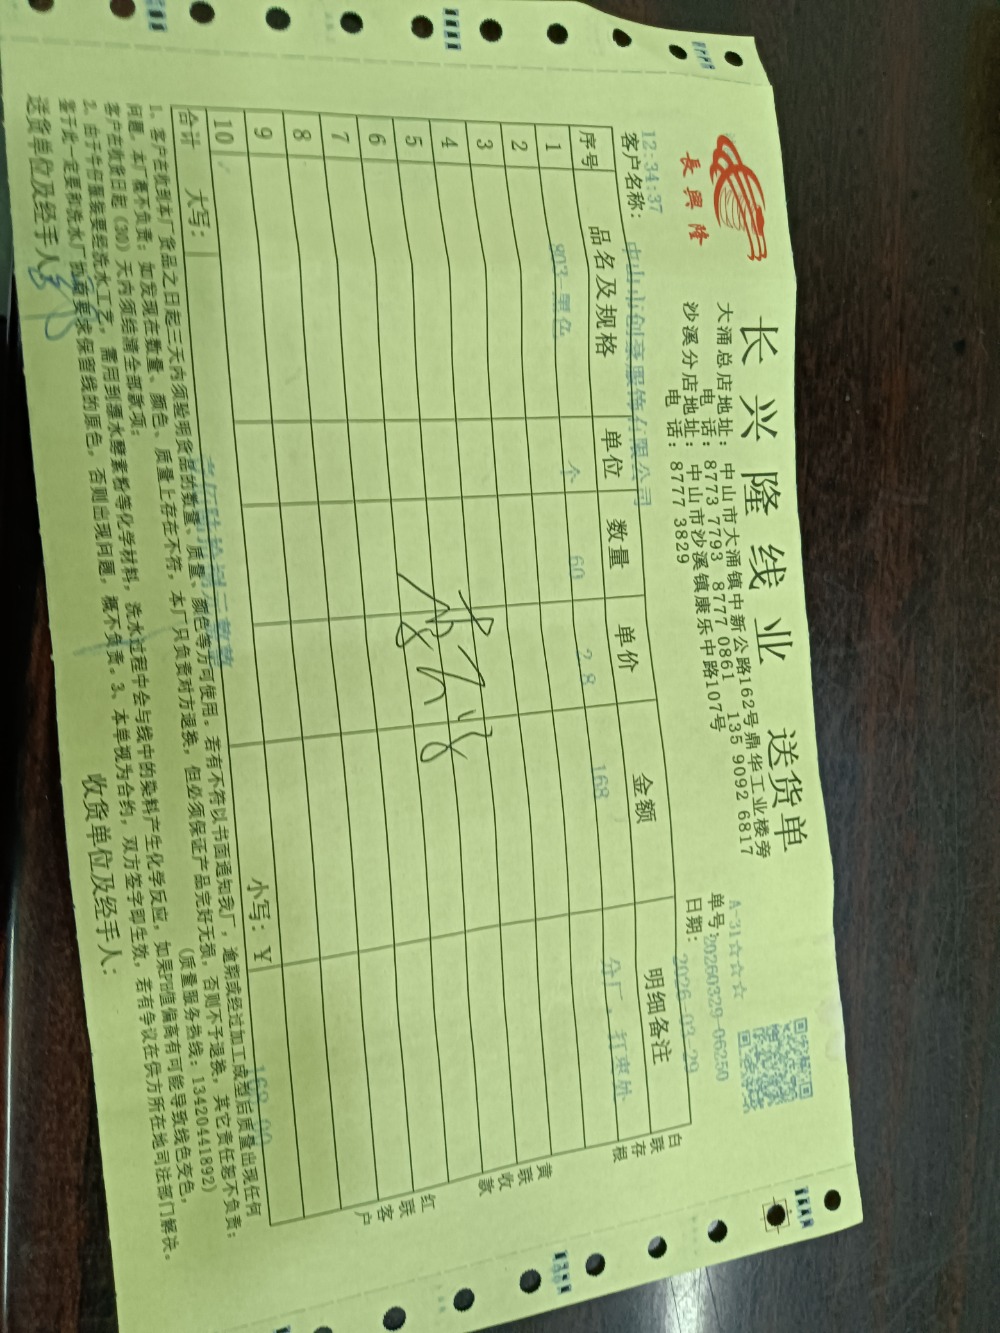 長興隆
长兴隆线业 送货单
大涌总店地址：中山市大涌镇中新公路162号鼎华工业楼旁
电话：8773 7793 8777 0861 135 9092 6817
沙溪分店地址：中山市沙溪镇康乐中路107号
电话：8777 3829
A-31☆☆☆
单号：20260329-06250
日期：2026-03-29
12:34:37
客户名称：中山市创豪服饰有限公司
序号 品名及规格 单位 数量 单价 金额 明细备注
1 803-黑色 个 60 2.8 168 分厂，打枣外
2
3
4
5
6
7
8
9
10
合计 大写： 壹佰陆拾捌元整 小写：￥ 168.00
白联存根
黄联收款
红联客户
1、客户在收到本厂货品之日起三天内须验明货品的数量、质量、颜色等方可使用。若有不符以书面通知我厂，逾期或经过加工成型后质量出现任何
问题，本厂概不负责；如发现在数量、颜色、质量上存在不符，本厂只负责对方退换，但必须保证产品完好无损，否则不予退换，其它责任恕不负责；
客户在收货日起（30）天内须结清全部款项； （质量服务热线：13420441892）
2、由于牛仔服装要经洗水工艺，需用到漂水酵素粉等化学材料，洗水过程中会与线中的染料产生化学反应，如果PH值偏高有可能导致线色变色，
鉴于此一定要和洗水厂协商要求保留线的原色，否则出现问题，概不负责。3、本单视为合约，双方签字即生效，若有争议在供方所在地司法部门解决。
送货单位及经手人： 收货单位及经手人：